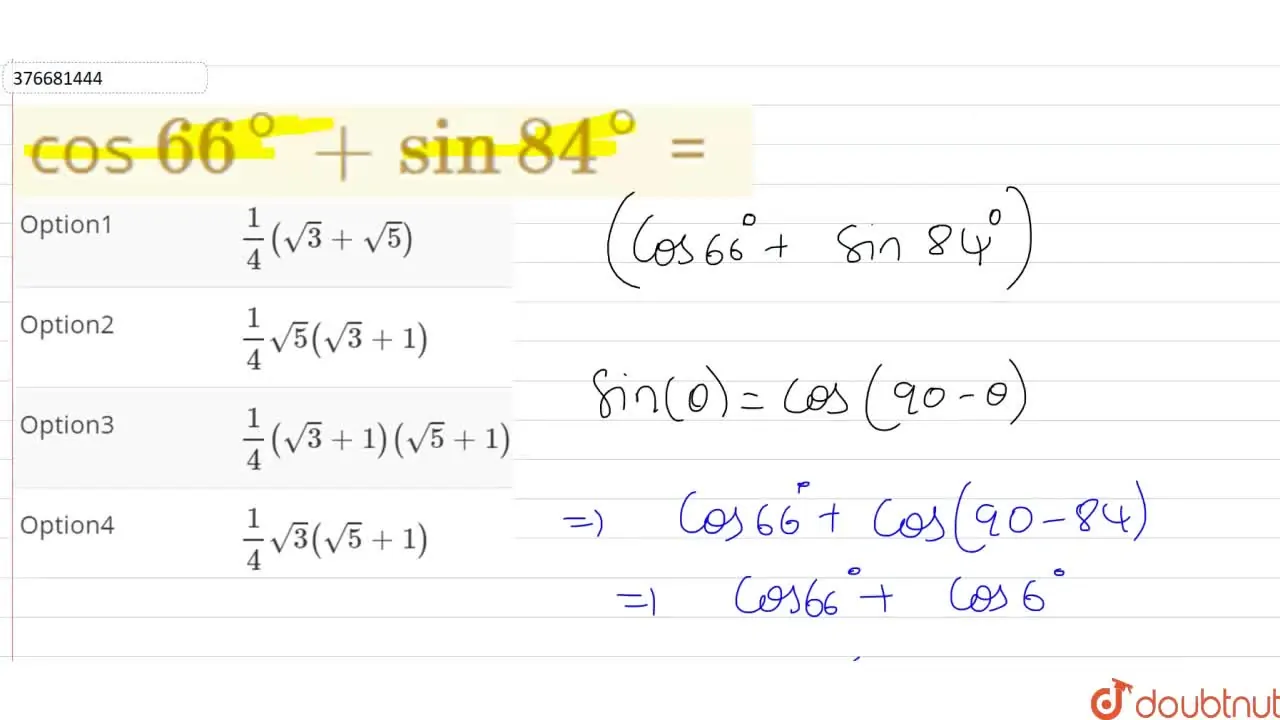 376681444
cos 66° + sin 84° =
Option1 1/4 (√3 + √5)
Option2 1/4 √5(√3 + 1)
Option3 1/4 (√3 + 1)(√5 + 1)
Option4 1/4 √3(√5 + 1)
(Cos 66° + Sin 84°)
Sin(θ) = Cos(90-θ)
=) Cos66° + Cos(90-84)
=) Cos66° + Cos6°
doubtnut